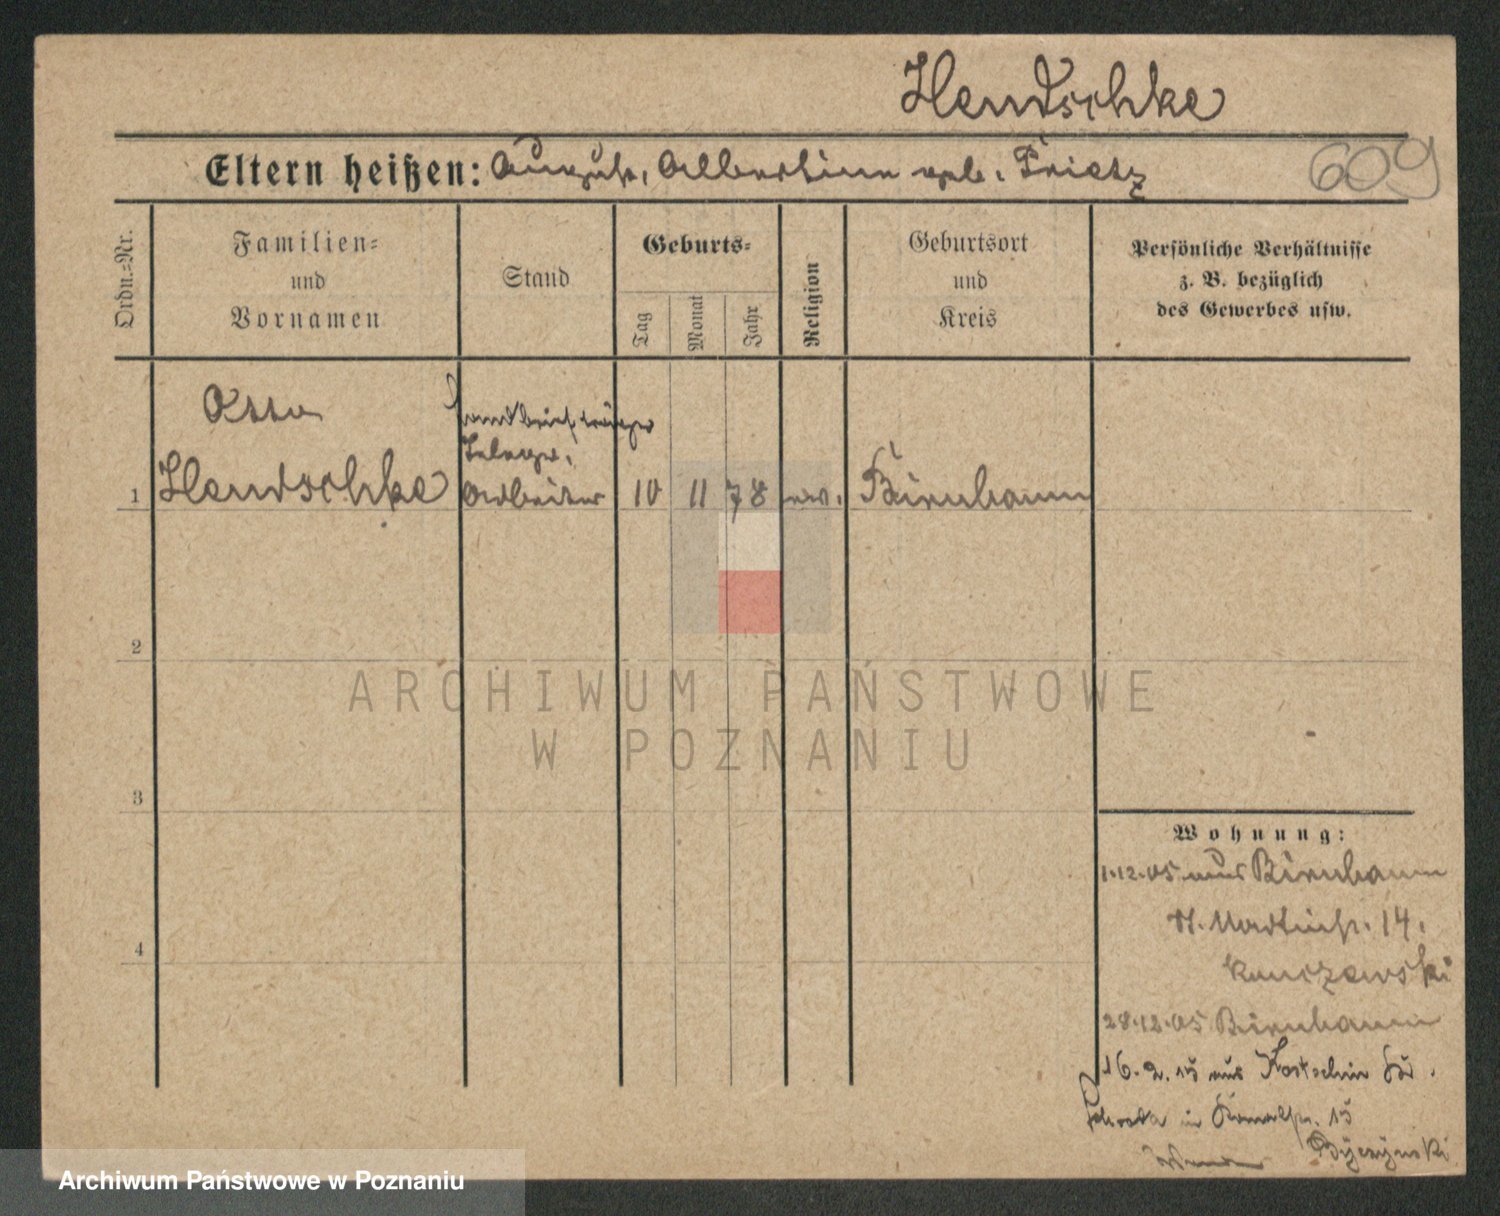 Hentschke
Eltern heißen: August, Albertine geb. Frietz
609
Ordn.=Nr.
Familien=
und
Vornamen
Stand
Geburts=
Tag
Monat
Jahr
Religion
Geburtsort
und
Kreis
Persönliche Verhältnisse
z. B. bezüglich
des Gewerbes usw.
Otto
Landbriefträger
Telegr.
1 Hentschke Arbeiter 10 11 78 ev. Birnbaum
2
ARCHIWUM PAŃSTWOWE
W POZNANIU
3
Wohnung:
1.12.05 aus Birnbaum
St. Martinstr. 14.
28.12.05 Birnbaum
4
16.2.15 aus Kostschin Kr.
Schroda in 15
Archiwum Państwowe w Poznaniu